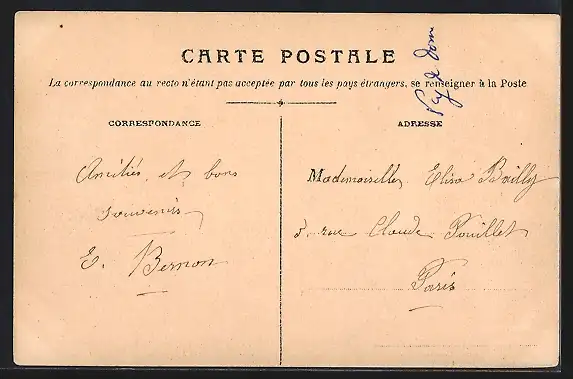 CARTE POSTALE
Puy de Dôme
La correspondance au recto n'étant pas acceptée par tous les pays étrangers, se renseigner à la Poste
CORRESPONDANCE
Amitiés et bons
souvenirs
E. Bernon
ADRESSE
Mademoiselle Elisa Bailly
5. rue Claude Pouillet
Paris